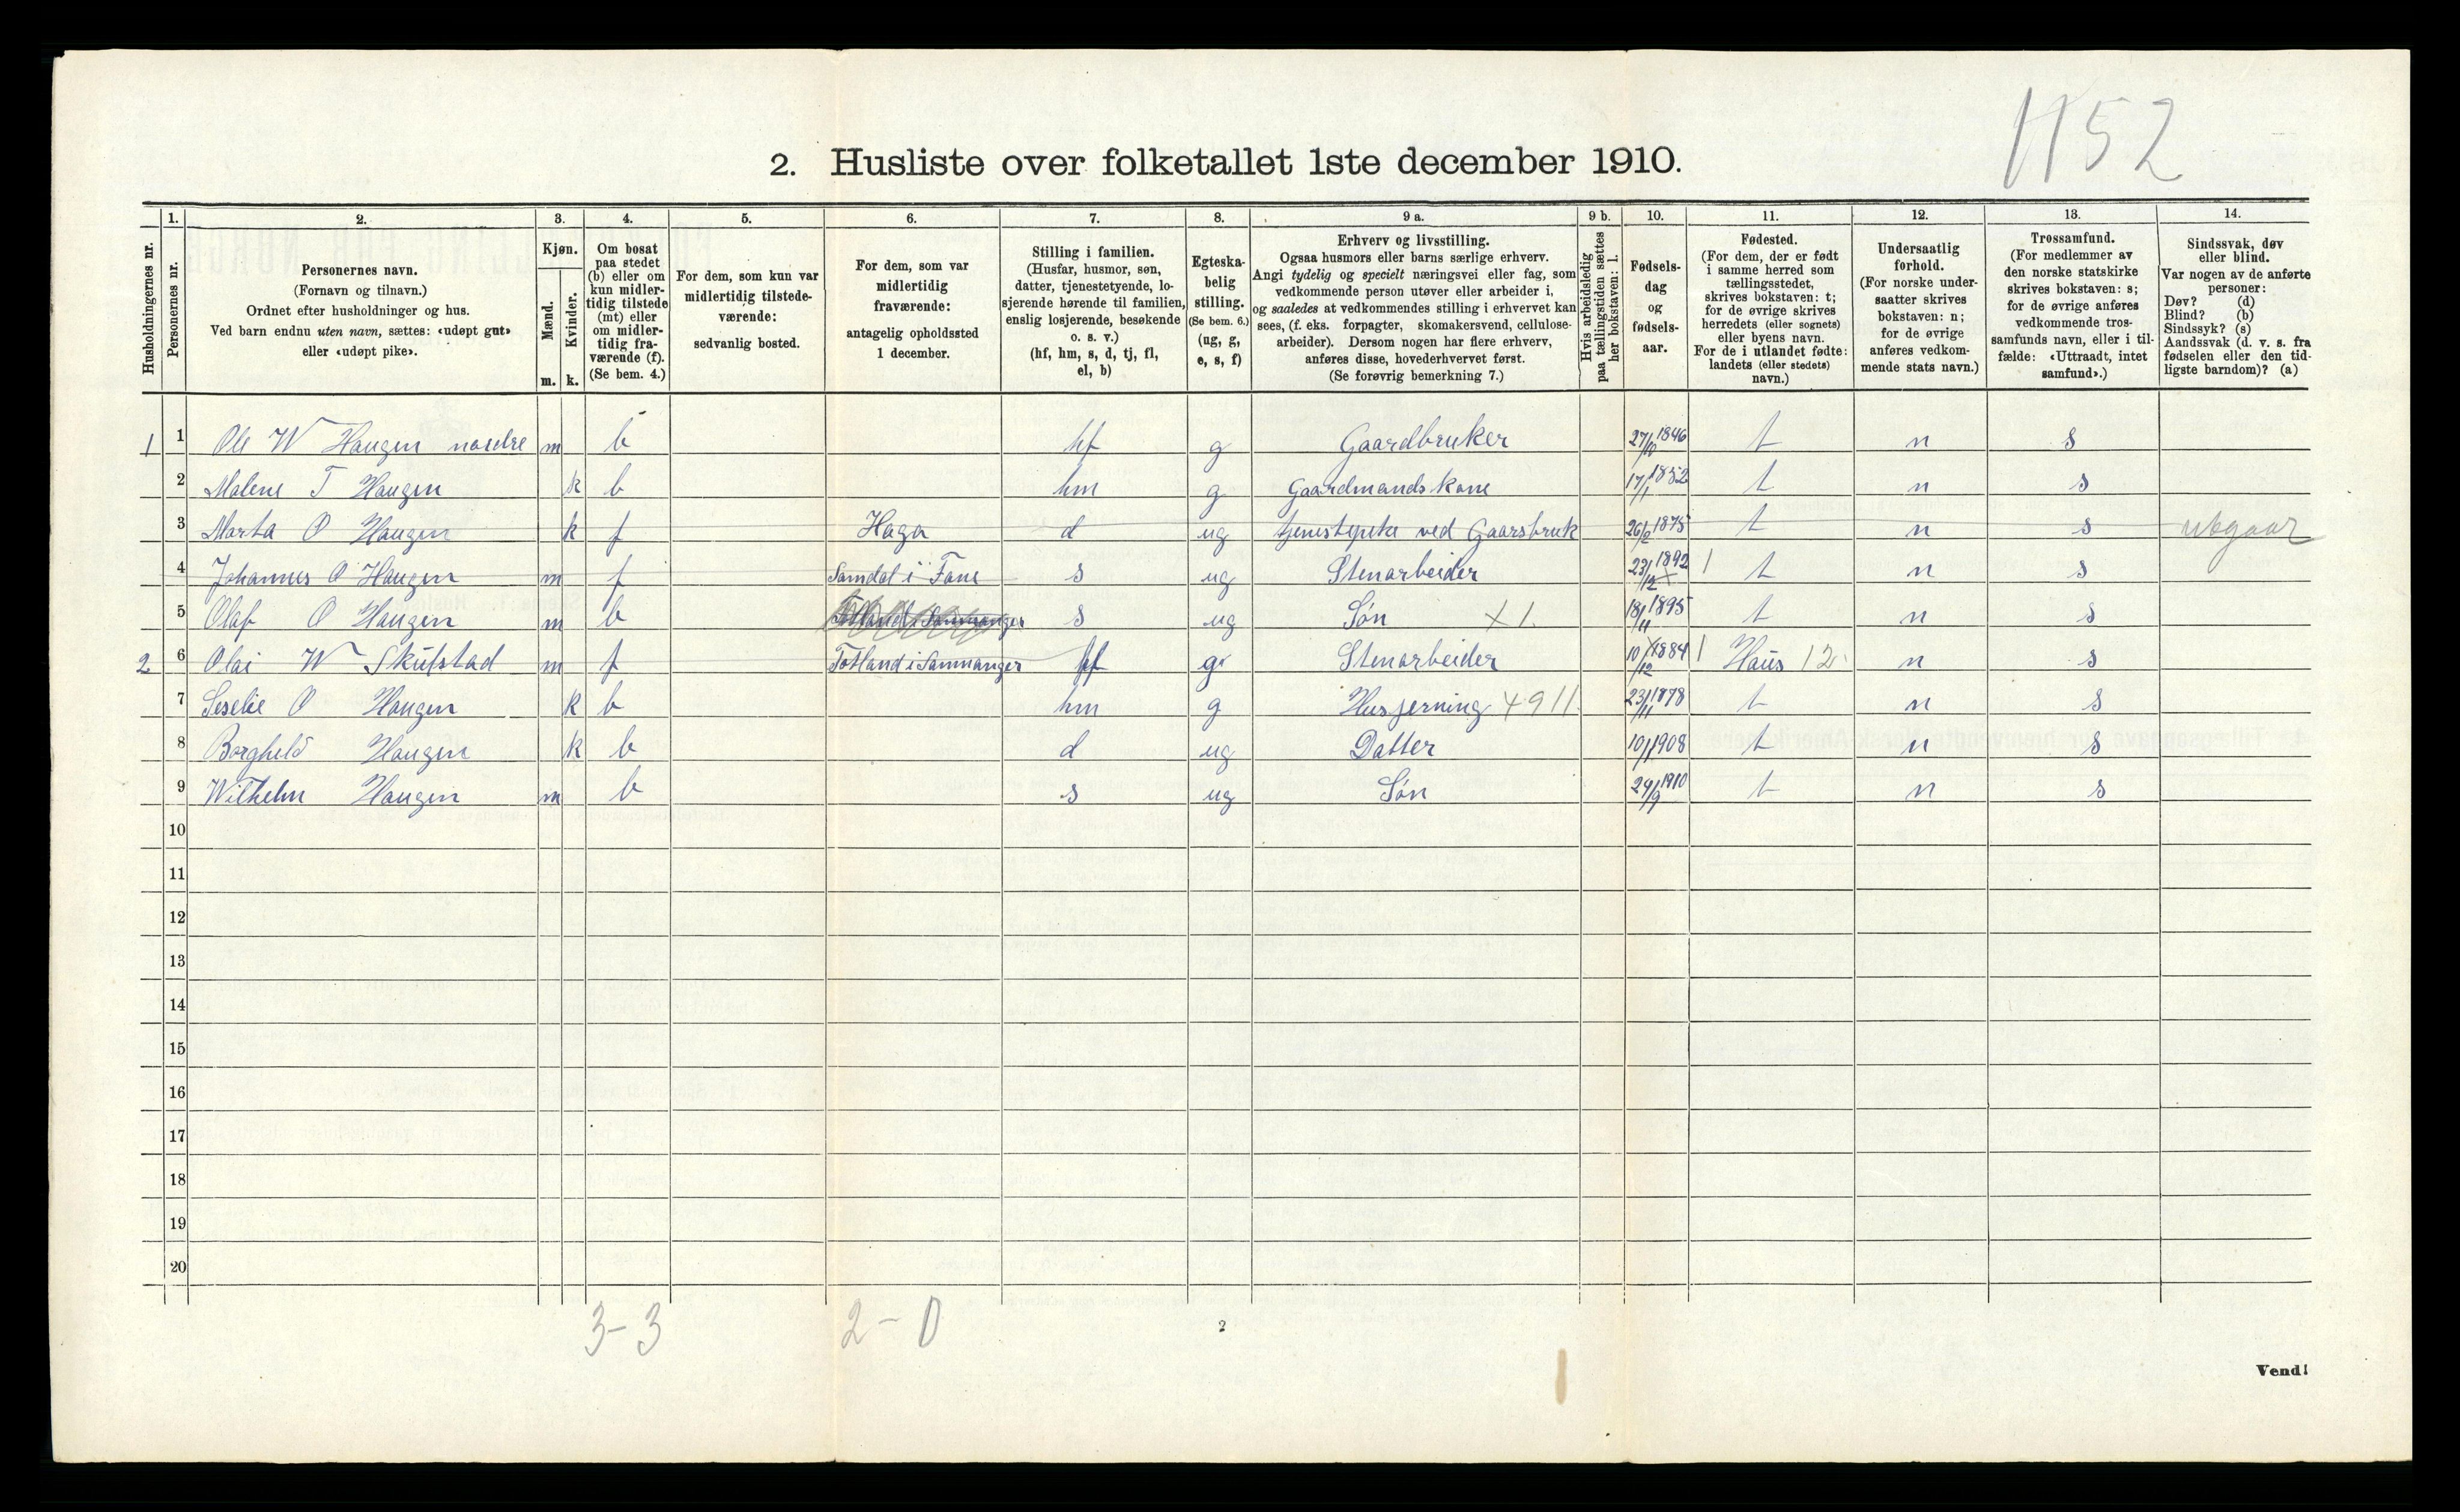 1152
2. Husliste over folketallet 1ste december 1910.
Husholdningernes nr.
1. Personernes nr.
2. Personernes navn. (Fornavn og tilnavn.) Ordnet efter husholdninger og hus. Ved barn endnu uten navn, sættes: «udøpt gut» eller «udøpt pike».
3. Kjøn. Mænd. m. Kvinder. k.
4. Om bosat paa stedet (b) eller om kun midlertidig tilstede (mt) eller om midlertidig fraværende (f). (Se bem. 4.)
5. For dem, som kun var midlertidig tilstedeværende: sedvanlig bosted.
6. For dem, som var midlertidig fraværende: antagelig opholdssted 1 december.
7. Stilling i familien. (Husfar, husmor, søn, datter, tjenestetyende, losjerende hørende til familien, enslig losjerende, besøkende o. s. v.) (hf, hm, s, d, tj, fl, el, b)
8. Egteskabelig stilling. (Se bem. 6.) (ug, g, e, s, f)
9 a. Erhverv og livsstilling. Ogsaa husmors eller barns særlige erhverv. Angi tydelig og specielt næringsvei eller fag, som vedkommende person utøver eller arbeider i, og saaledes at vedkommendes stilling i erhvervet kan sees, (f. eks. forpagter, skomakersvend, cellulosearbeider). Dersom nogen har flere erhverv, anføres disse, hovederhvervet først. (Se forøvrig bemerkning 7.)
9 b. Hvis arbeidsledig paa tællingstiden sættes her bokstaven: l.
10. Fødselsdag og fødselsaar.
11. Fødested. (For dem, der er født i samme herred som tællingsstedet, skrives bokstaven: t; for de øvrige skrives herredets (eller sognets) eller byens navn. For de i utlandet fødte: landets (eller stedets) navn.)
12. Undersaatlig forhold. (For norske undersaatter skrives bokstaven: n; for de øvrige anføres vedkommende stats navn.)
13. Trossamfund. (For medlemmer av den norske statskirke skrives bokstaven: s; for de øvrige anføres vedkommende trossamfunds navn, eller i tilfælde: «Uttraadt, intet samfund».)
14. Sindssvak, døv eller blind. Var nogen av de anførte personer: Døv? (d) Blind? (b) Sindssyk? (s) Aandssvak (d. v. s. fra fødselen eller den tidligste barndom)? (a)
1 1 Ole W Haugen nordre m b hf g Gaardbruker 27/10 1846 t n s
2 Malene T Haugen k b hm g Gaardmandskone 17/1 1852 t n s
3 Marta O Haugen k f Haga d ug tjenestepike ved Gaarsbruk 26/2 1875 t n s utgaar
4 Johannes O Haugen m f Samdal i Fane s ug Stenarbeider 23/12 1892 1 t n s
5 Olaf O Haugen m b Totland i Samnanger s ug Søn X 1 18/11 1895 t n s
2 6 Olai W Skulstad m f Totland i Samnanger hf g Stenarbeider 10/12 1884 1 Haus 12 n s
7 Seselie O Haugen k b hm g Husgjerning +911 23/11 1878 t n s
8 Borghild Haugen k b d ug Datter 10/1 1908 t n s
9 Wilhelm Haugen m b s ug Søn 29/9 1910 t n s
10
11
12
13
14
15
16
17
18
19
20
3-3 2-0
2
Vend!